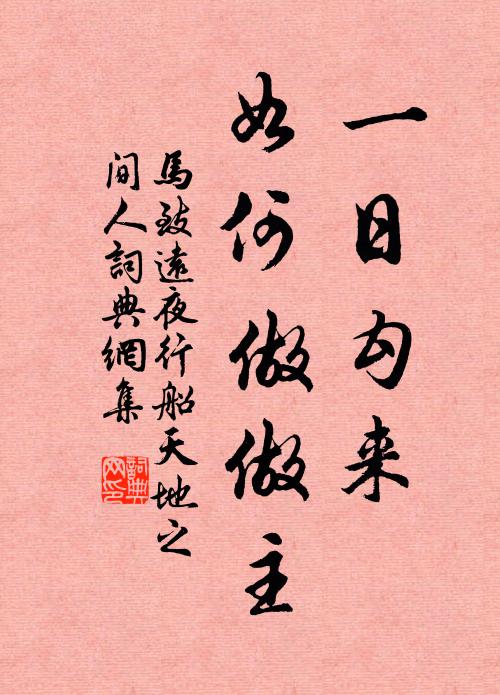 一日勾来
如何做做主
馬致遠夜行船天地之
间人詞典網集
詞典
网印